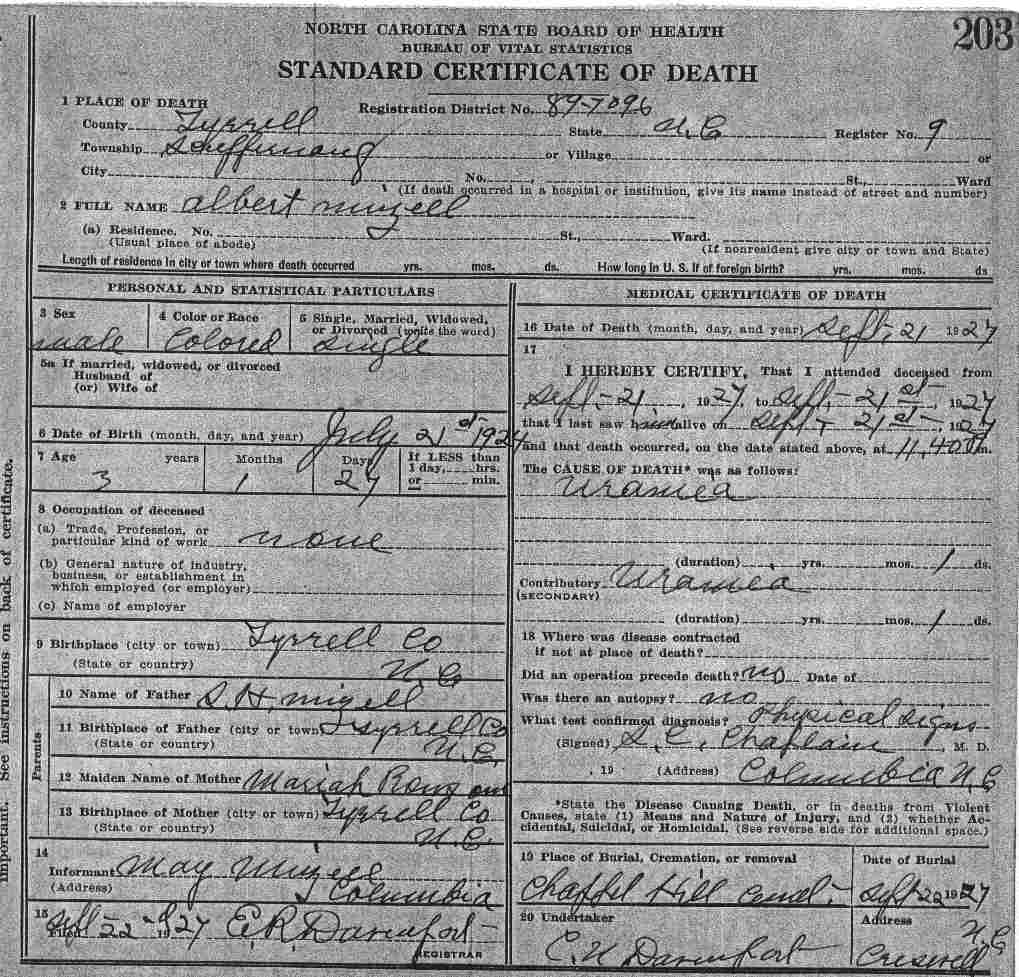 203
NORTH CAROLINA STATE BOARD OF HEALTH
BUREAU OF VITAL STATISTICS
STANDARD CERTIFICATE OF DEATH
1 PLACE OF DEATH Registration District No. 89-7096
County Tyrrell State N.C. Register No. 9
Township Scuffernong or Village or
City No. , St., Ward
(If death occurred in a hospital or institution, give its name instead of street and number)
2 FULL NAME albert mizell
(a) Residence. No. St., Ward.
(Usual place of abode) (If nonresident give city or town and State)
Length of residence in city or town where death occurred yrs. mos. ds. How long in U. S. if of foreign birth? yrs. mos. ds
PERSONAL AND STATISTICAL PARTICULARS
3 Sex 4 Color or Race 5 Single, Married, Widowed,
or Divorced (write the word)
male Colored Single
5a If married, widowed, or divorced
Husband of
(or) Wife of
6 Date of Birth (month, day, and year) July 21 1924
7 Age years Months Days If LESS than
1 day, hrs.
or min.
3 1
8 Occupation of deceased
(a) Trade, Profession, or
particular kind of work none
(b) General nature of industry,
business, or establishment in
which employed (or employer)
(c) Name of employer
9 Birthplace (city or town) Tyrrell Co
(State or country) N.C.
Parents
10 Name of Father S. H. mizell
11 Birthplace of Father (city or town) Tyrrell Co
(State or country) N.C.
12 Maiden Name of Mother Mariah
13 Birthplace of Mother (city or town) Tyrrell Co
(State or country) N.C.
14
Informant May Mizell
(Address) Columbia
15
Filed Sept 22 1927 E.R. Davenport
REGISTRAR
MEDICAL CERTIFICATE OF DEATH
16 Date of Death (month, day, and year) Sept. 21 1927
17
I HEREBY CERTIFY, That I attended deceased from
Sept. 21, 1927, to Sept. 21st, 1927
that I last saw him alive on Sept 21st, 1927
and that death occurred, on the date stated above, at 11,40 m.
The CAUSE OF DEATH* was as follows:
Uramea
(duration) yrs. mos. 1 ds.
Contributory Uramea
(SECONDARY)
(duration) yrs. mos. 1 ds.
18 Where was disease contracted
if not at place of death?
Did an operation precede death? no Date of
Was there an autopsy? no
What test confirmed diagnosis? Physical signs
(Signed) S. C. Chaplain, M. D.
, 19 (Address) Columbia N.C
*State the Disease Causing Death, or in deaths from Violent
Causes, state (1) Means and Nature of Injury, and (2) whether Ac-
cidental, Suicidal, or Homicidal. (See reverse side for additional space.)
19 Place of Burial, Cremation, or removal Date of Burial
Chappel Hill Sept 22 1927
20 Undertaker Address
C. N Davenport Creswell N.C
important. See instructions on back of certificate.